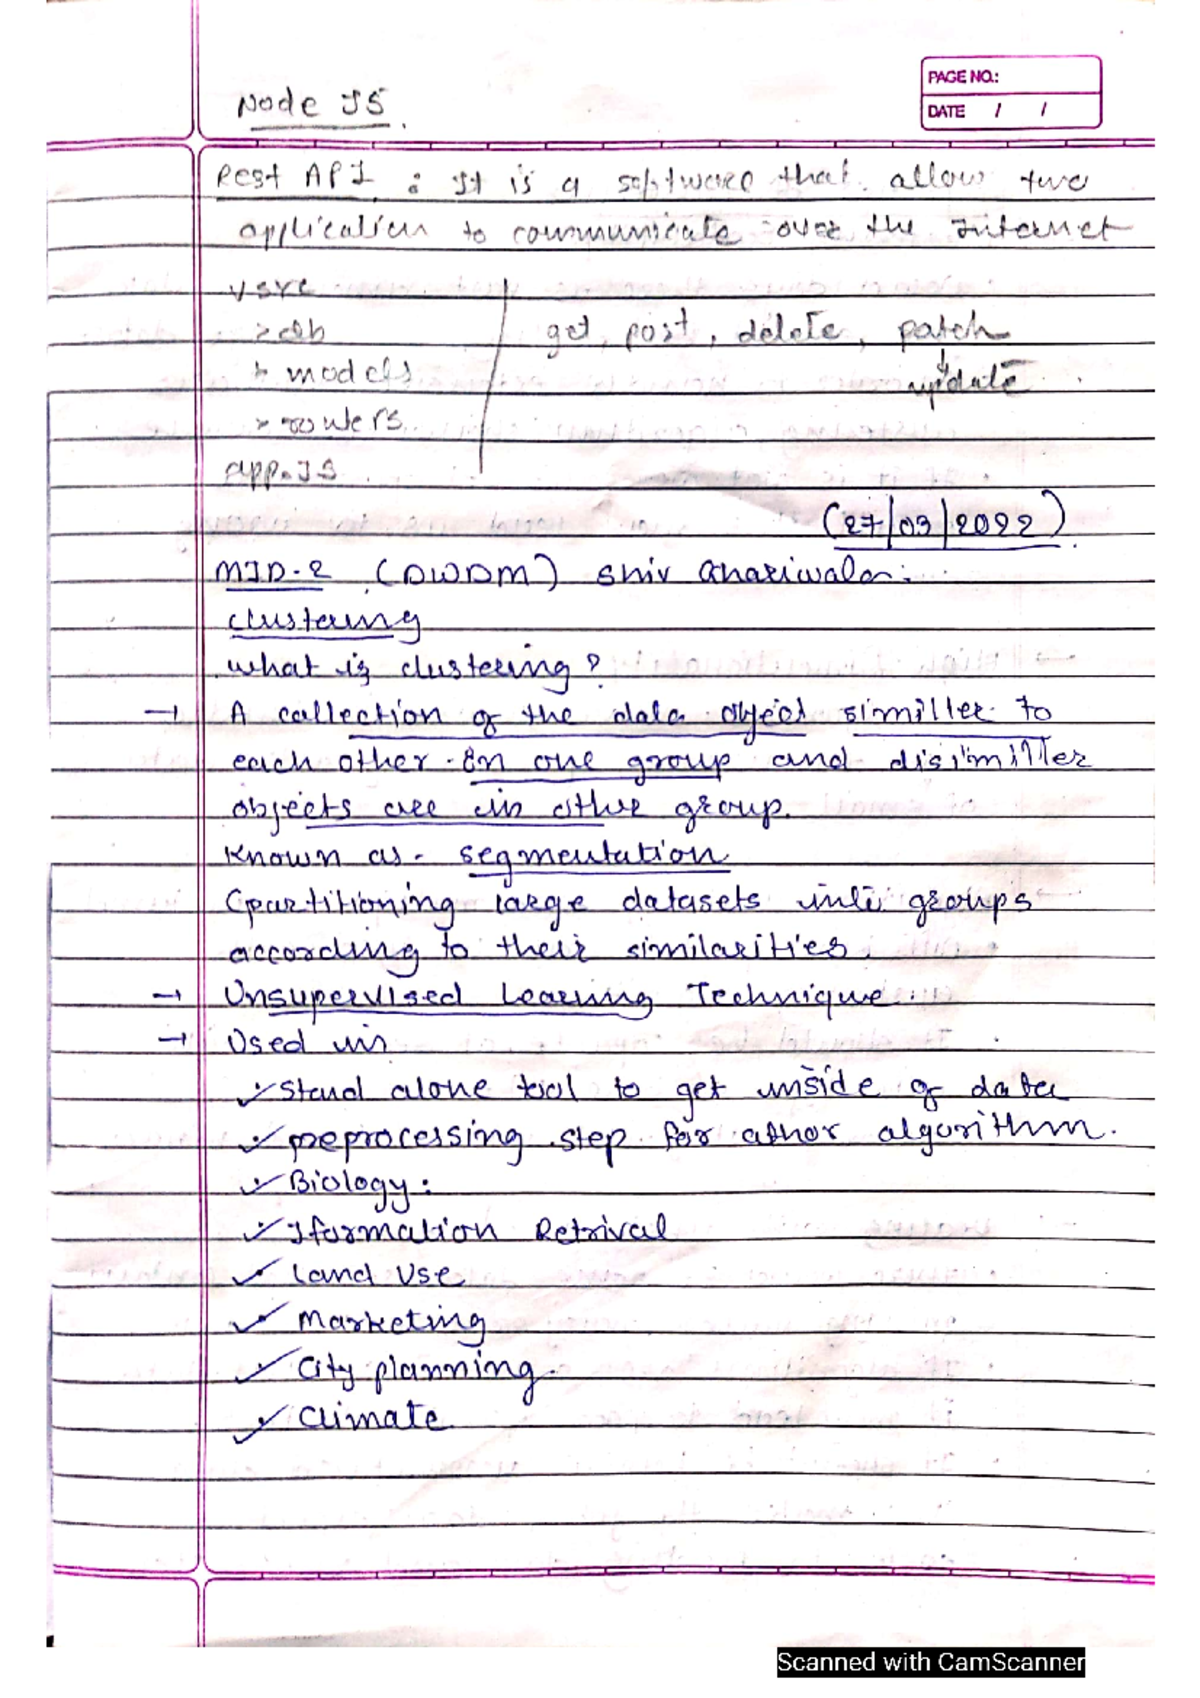 Node JS
PAGE NO.:
DATE / /
Rest API : It is a software that allow two
application to communicate over the Internet
v src
> db
> models
> routers
app.JS
get, post, delete, patch
↓
update
(27/03/2022)
MID-2 (DWDM) Shiv
clustering
what is clustering?
→ A collection of the data object similler to
each other in one group and disimiller
objects are in othe group.
Known as - segmentation
(partitioning large datasets into groups
according to their similarities.
→ Unsupervised Learning Technique.
→ Used in
✓ Stand alone tool to get inside of data
✓ preprocessing step for athor algorithm.
✓ Biology:
✓ Iformation Retrival
✓ Land Use
✓ Marketing
✓ City planning.
✓ Climate
Scanned with CamScanner